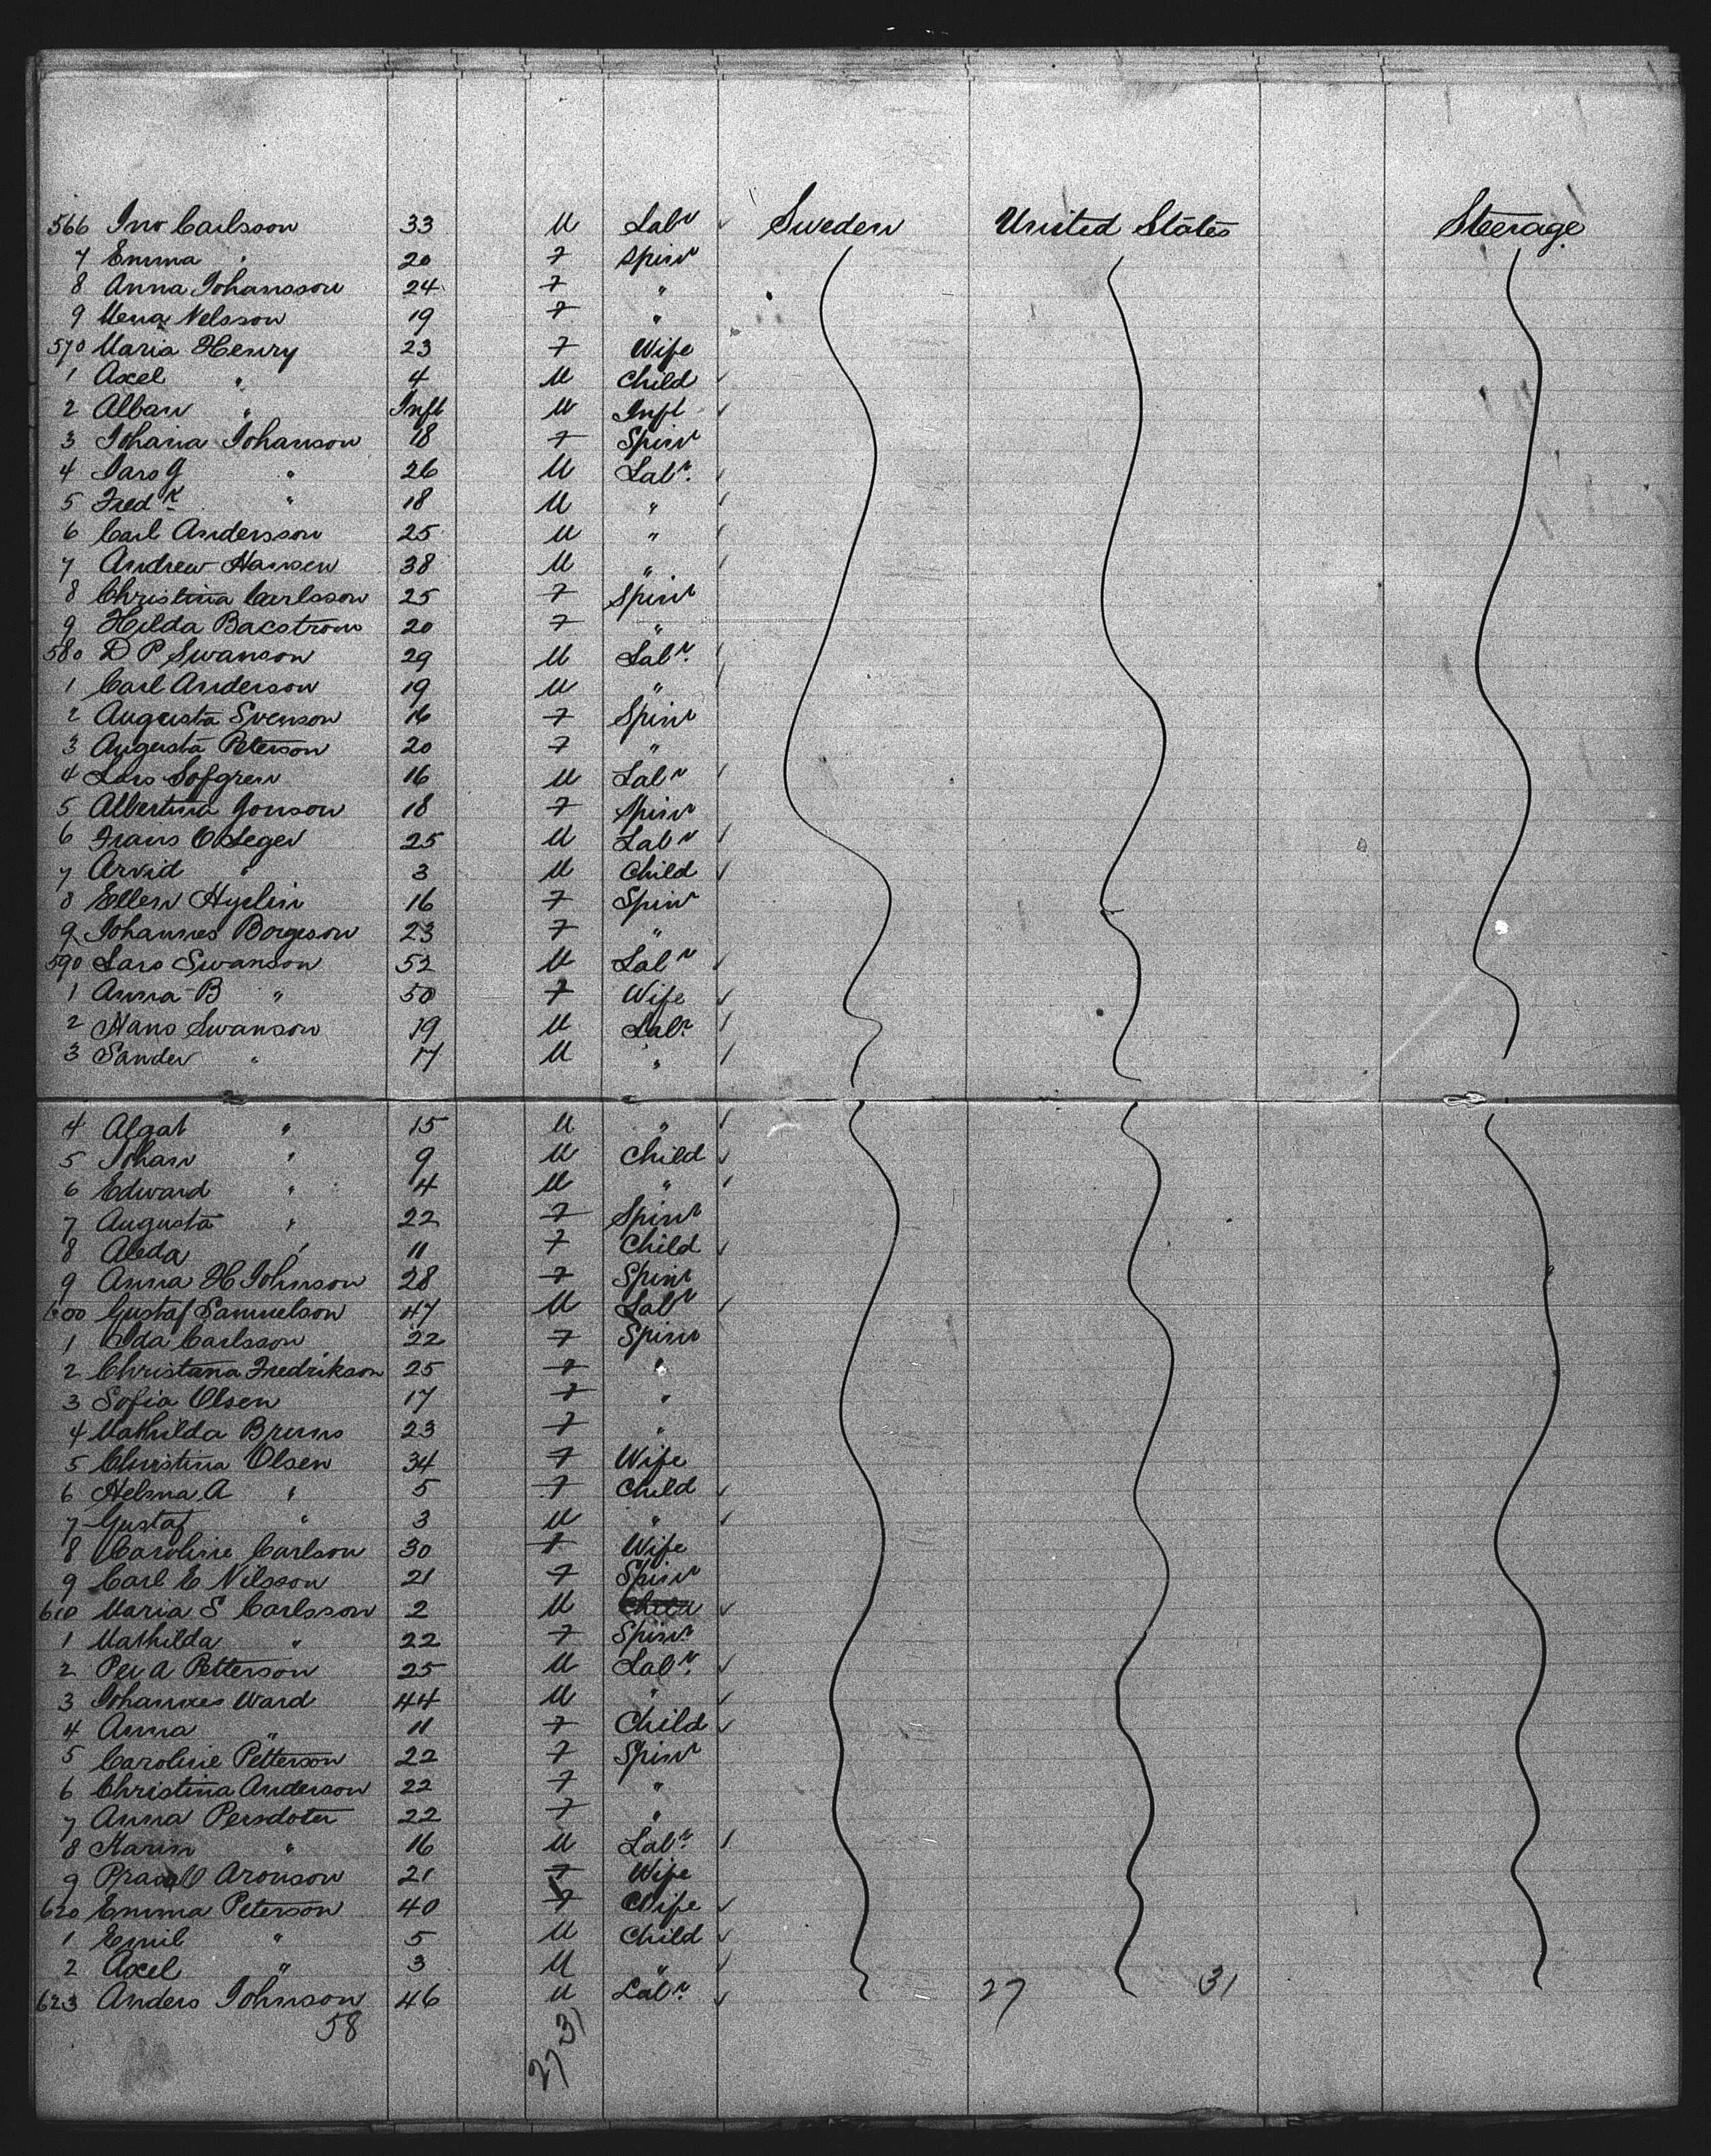 566 Jno Carlsson 33 M Labr ✓ Sweden United States Steerage
7 Emma " 20 F Spinr
8 Anna Johansson 24 F "
9 Mena Nelsson 19 F "
570 Maria Henry 23 F Wife
1 Axel " 4 M Child ✓
2 Alban " Inft M Inft ✓
3 Johana Johanson 18 F Spinr
4 Lars G " 26 M Labr. ✓
5 Fredk " 18 M " ✓
6 Carl Andersson 25 M " ✓
7 Andrew Hansen 38 M " ✓
8 Christina Carlsson 25 F Spinr
9 Hilda Bacstrom 20 F "
580 D P Swanson 29 M Labr. ✓
1 Carl Anderson 19 M " ✓
2 Augusta Svenson 16 F Spinr
3 Augusta Peterson 20 F "
4 Lars Sofgren 16 M Labr ✓
5 Albertina Jonson 18 F Spinr
6 Frans O Seger 25 M Labr ✓
7 Arvid " 3 M Child ✓
8 Ellen Hyslin 16 F Spinr
9 Johannes Borgeson 23 F "
590 Lars Swanson 52 M Labr ✓
1 Anna B " 50 F Wife ✓
2 Hans Swanson 19 M Labr. ✓
3 Sander " 17 M " ✓
4 Algat " 15 M " ✓
5 Johan " 9 M Child ✓
6 Edward " 4 M " ✓
7 Augusta " 22 F Spinr
8 Aleda " 11 F Child ✓
9 Anna H Johnson 28 F Spinr
600 Gustaf Samuelson 47 M Labr ✓
1 Ida Carlsson 22 F Spinr
2 Christana Fredrikson 25 F "
3 Sofia Olsen 17 F "
4 Mathilda Bruns 23 F "
5 Christina Olsen 34 F Wife
6 Helma A " 5 F Child ✓
7 Gustaf " 3 M " ✓
8 Caroline Carlson 30 F Wife
9 Carl E Nilsson 21 F Spinr
610 Maria S Carlsson 2 M Child ✓
1 Mathilda " 22 F Spinr.
2 Per A Petterson 25 M Labr. ✓
3 Johannes Ward 44 M " ✓
4 Anna " 11 F Child ✓
5 Caroline Petterson 22 F Spinr
6 Christina Anderson 22 F "
7 Anna Persdoter 22 F "
8 Karin " 16 M Labr. ✓
9 Aronson 21 F Wife
620 Emma Peterson 40 F Wife ✓
1 Emil " 5 M Child ✓
2 Axel " 3 M " ✓
623 Anders Johnson 46 M Labr. ✓ 27 31
58 31
27